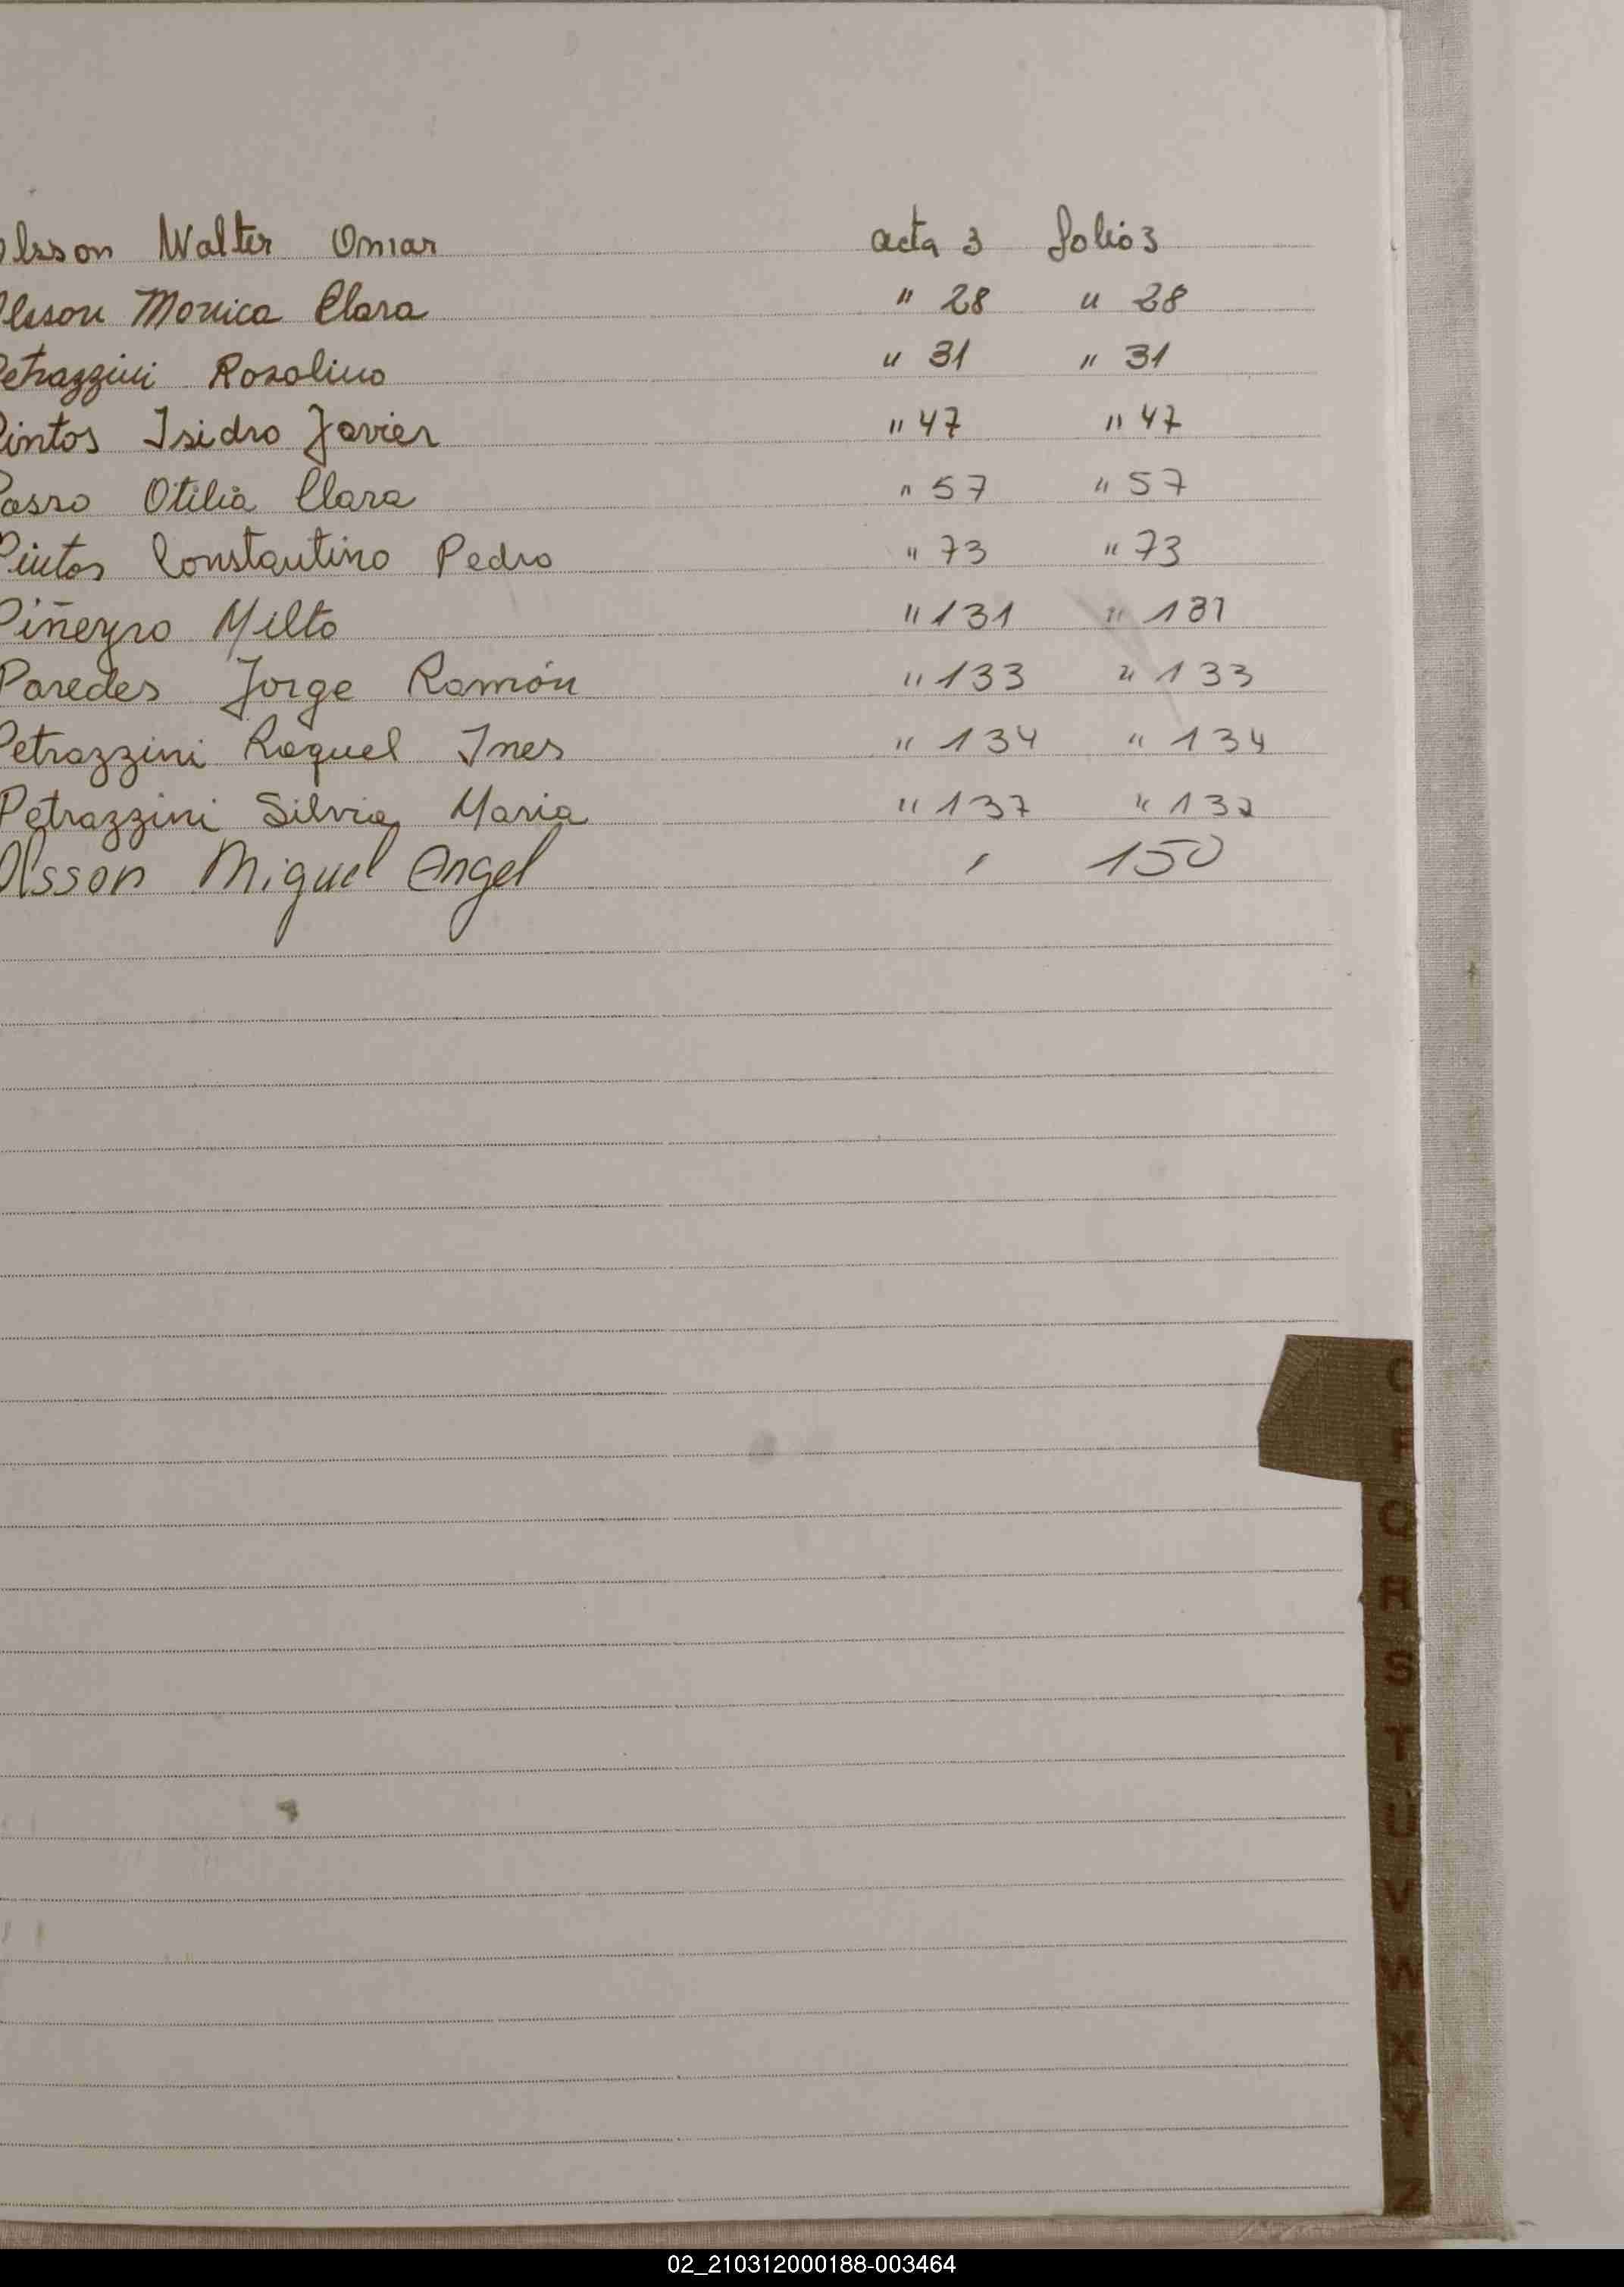 Olsson Walter Omar acta 3 folio 3
Olsson Monica Clara " 28 " 28
Petrazzini Rosolino " 31 " 31
Pintos Isidro Javier " 47 " 47
Passo Otilia Clara " 57 " 57
Pintos Constantino Pedro " 73 " 73
Piñeyro Milto " 131 " 131
Paredes Jorge Ramón " 133 " 133
Petrazzini Raquel Ines " 134 " 134
Petrazzini Silvia Maria " 137 " 137
Olsson Miguel Angel , 150
O
P
Q
R
S
T
U
V
W
X
Y
Z
02_210312000188-003464